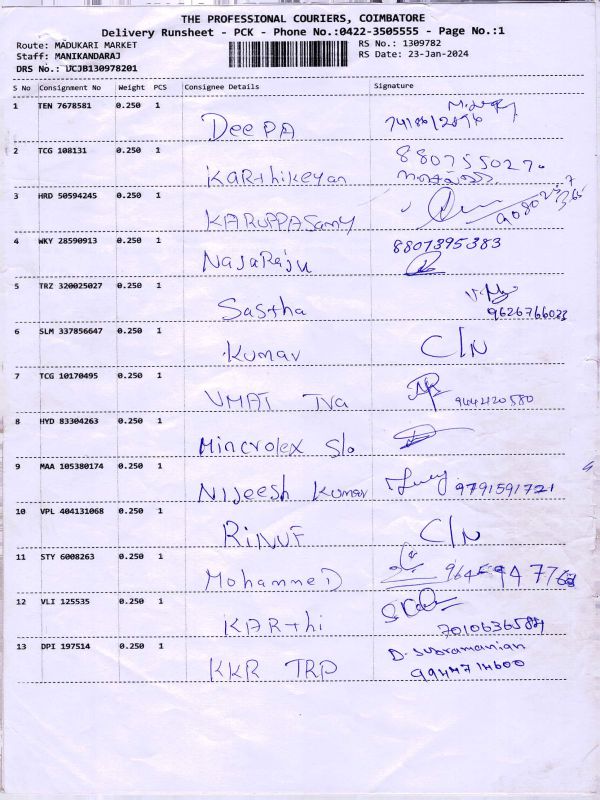 THE PROFESSIONAL COURIERS, COIMBATORE
Delivery Runsheet - PCK - Phone No.:0422-3505555 - Page No.:1
Route: MADUKARI MARKET
Staff: MANIKANDARAJ
DRS No.: UCJB130978201
RS No.: 1309782
RS Date: 23-Jan-2024
S No Consignment No Weight PCS Consignee Details Signature
1 TEN 7678581 0.250 1
DeePA
2 TCG 108131 0.250 1
KARthiKeyan
3 HRD 50594245 0.250 1
KARUPPASamy
4 WKY 28590913 0.250 1 8807395383
NagaRaju
5 TRZ 320025027 0.250 1
Sastha 9626766023
6 SLM 337856647 0.250 1
Kumar C/N
7 TCG 10170495 0.250 1
UMAT Tva 9444120580
8 HYD 83304263 0.250 1
Mincrolex Slo
9 MAA 105380174 0.250 1
Nijeesh Kumar 9791591721
10 VPL 404131068 0.250 1
C/N
11 STY 6008263 0.250 1
MohammeD
12 VLI 125535 0.250 1
KARthi 7010636584
13 DPI 197514 0.250 1 D. Subramanian
KKR TRP 9944714600